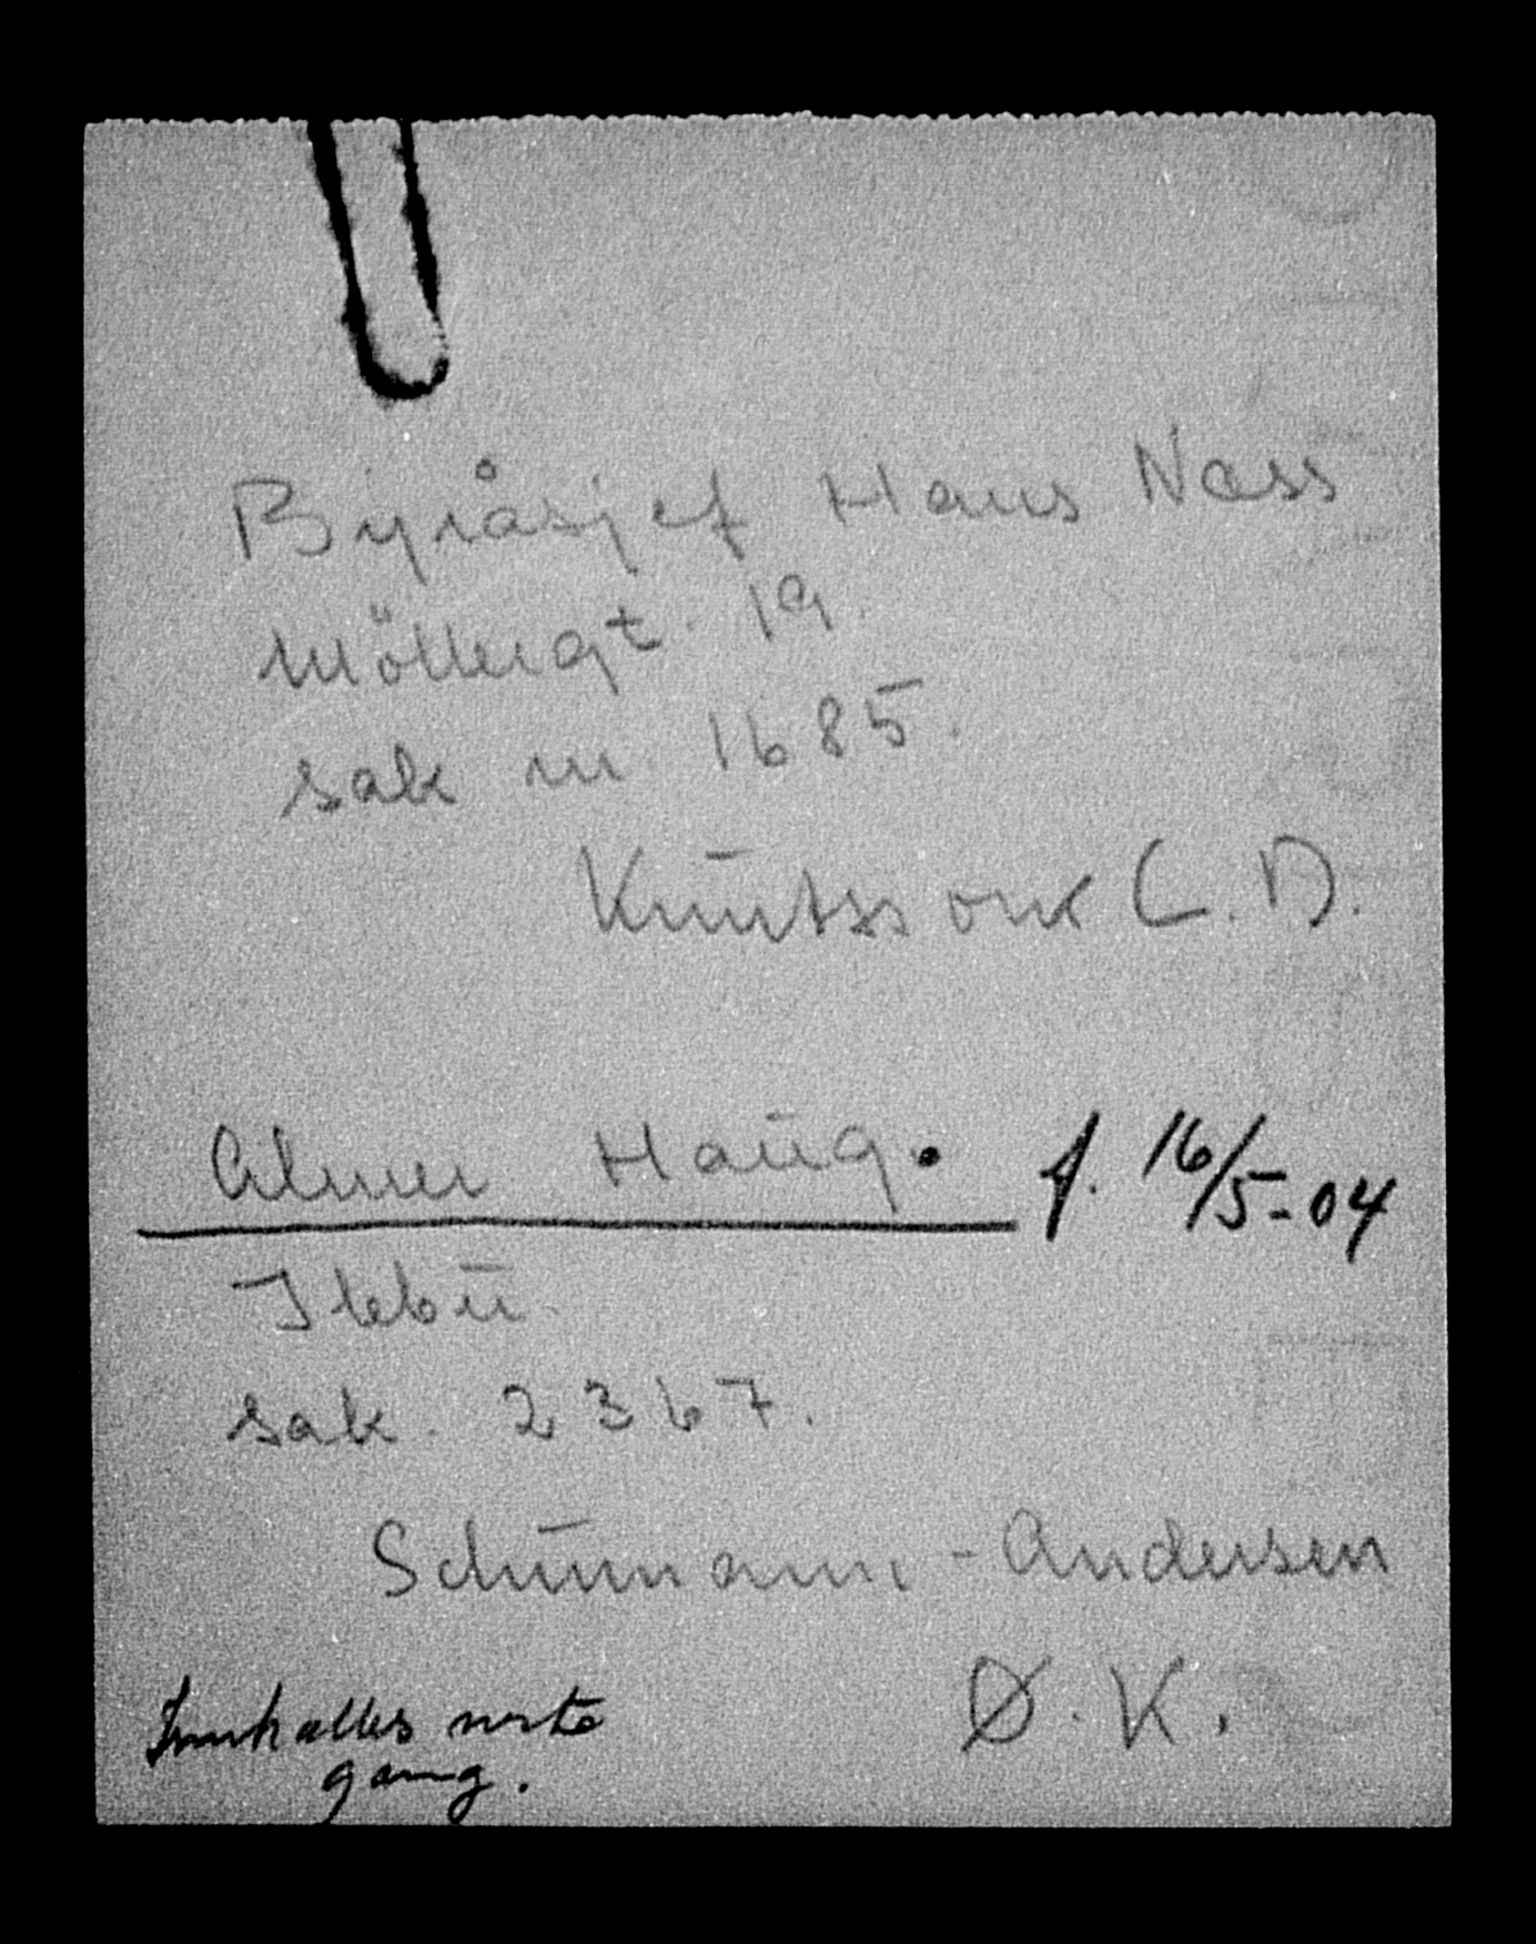 Byråsjef Hans Næss
Möllergt. 19.
sak nr. 1685.
Knutsson L. D.
Almer Haug. f. 16/5-04
Ilebu.
sak. 2367.
Schumann - Andersen
Ø. K.
Innkalles neste
gang.